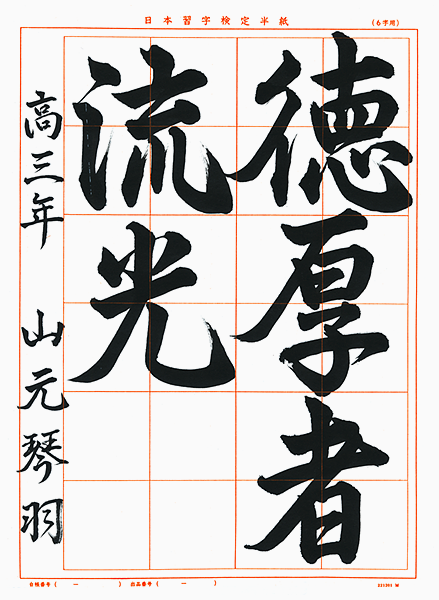 日本習字検定半紙
(6字用)
徳厚者
流光
高三年 山元琴羽
会帳番号( ー )
出品番号( ー )